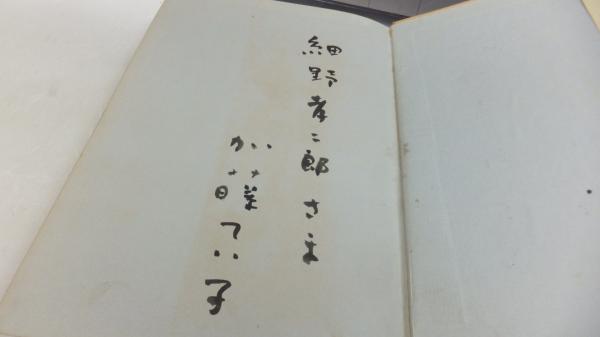 細野孝二郎さま
加藤てい子